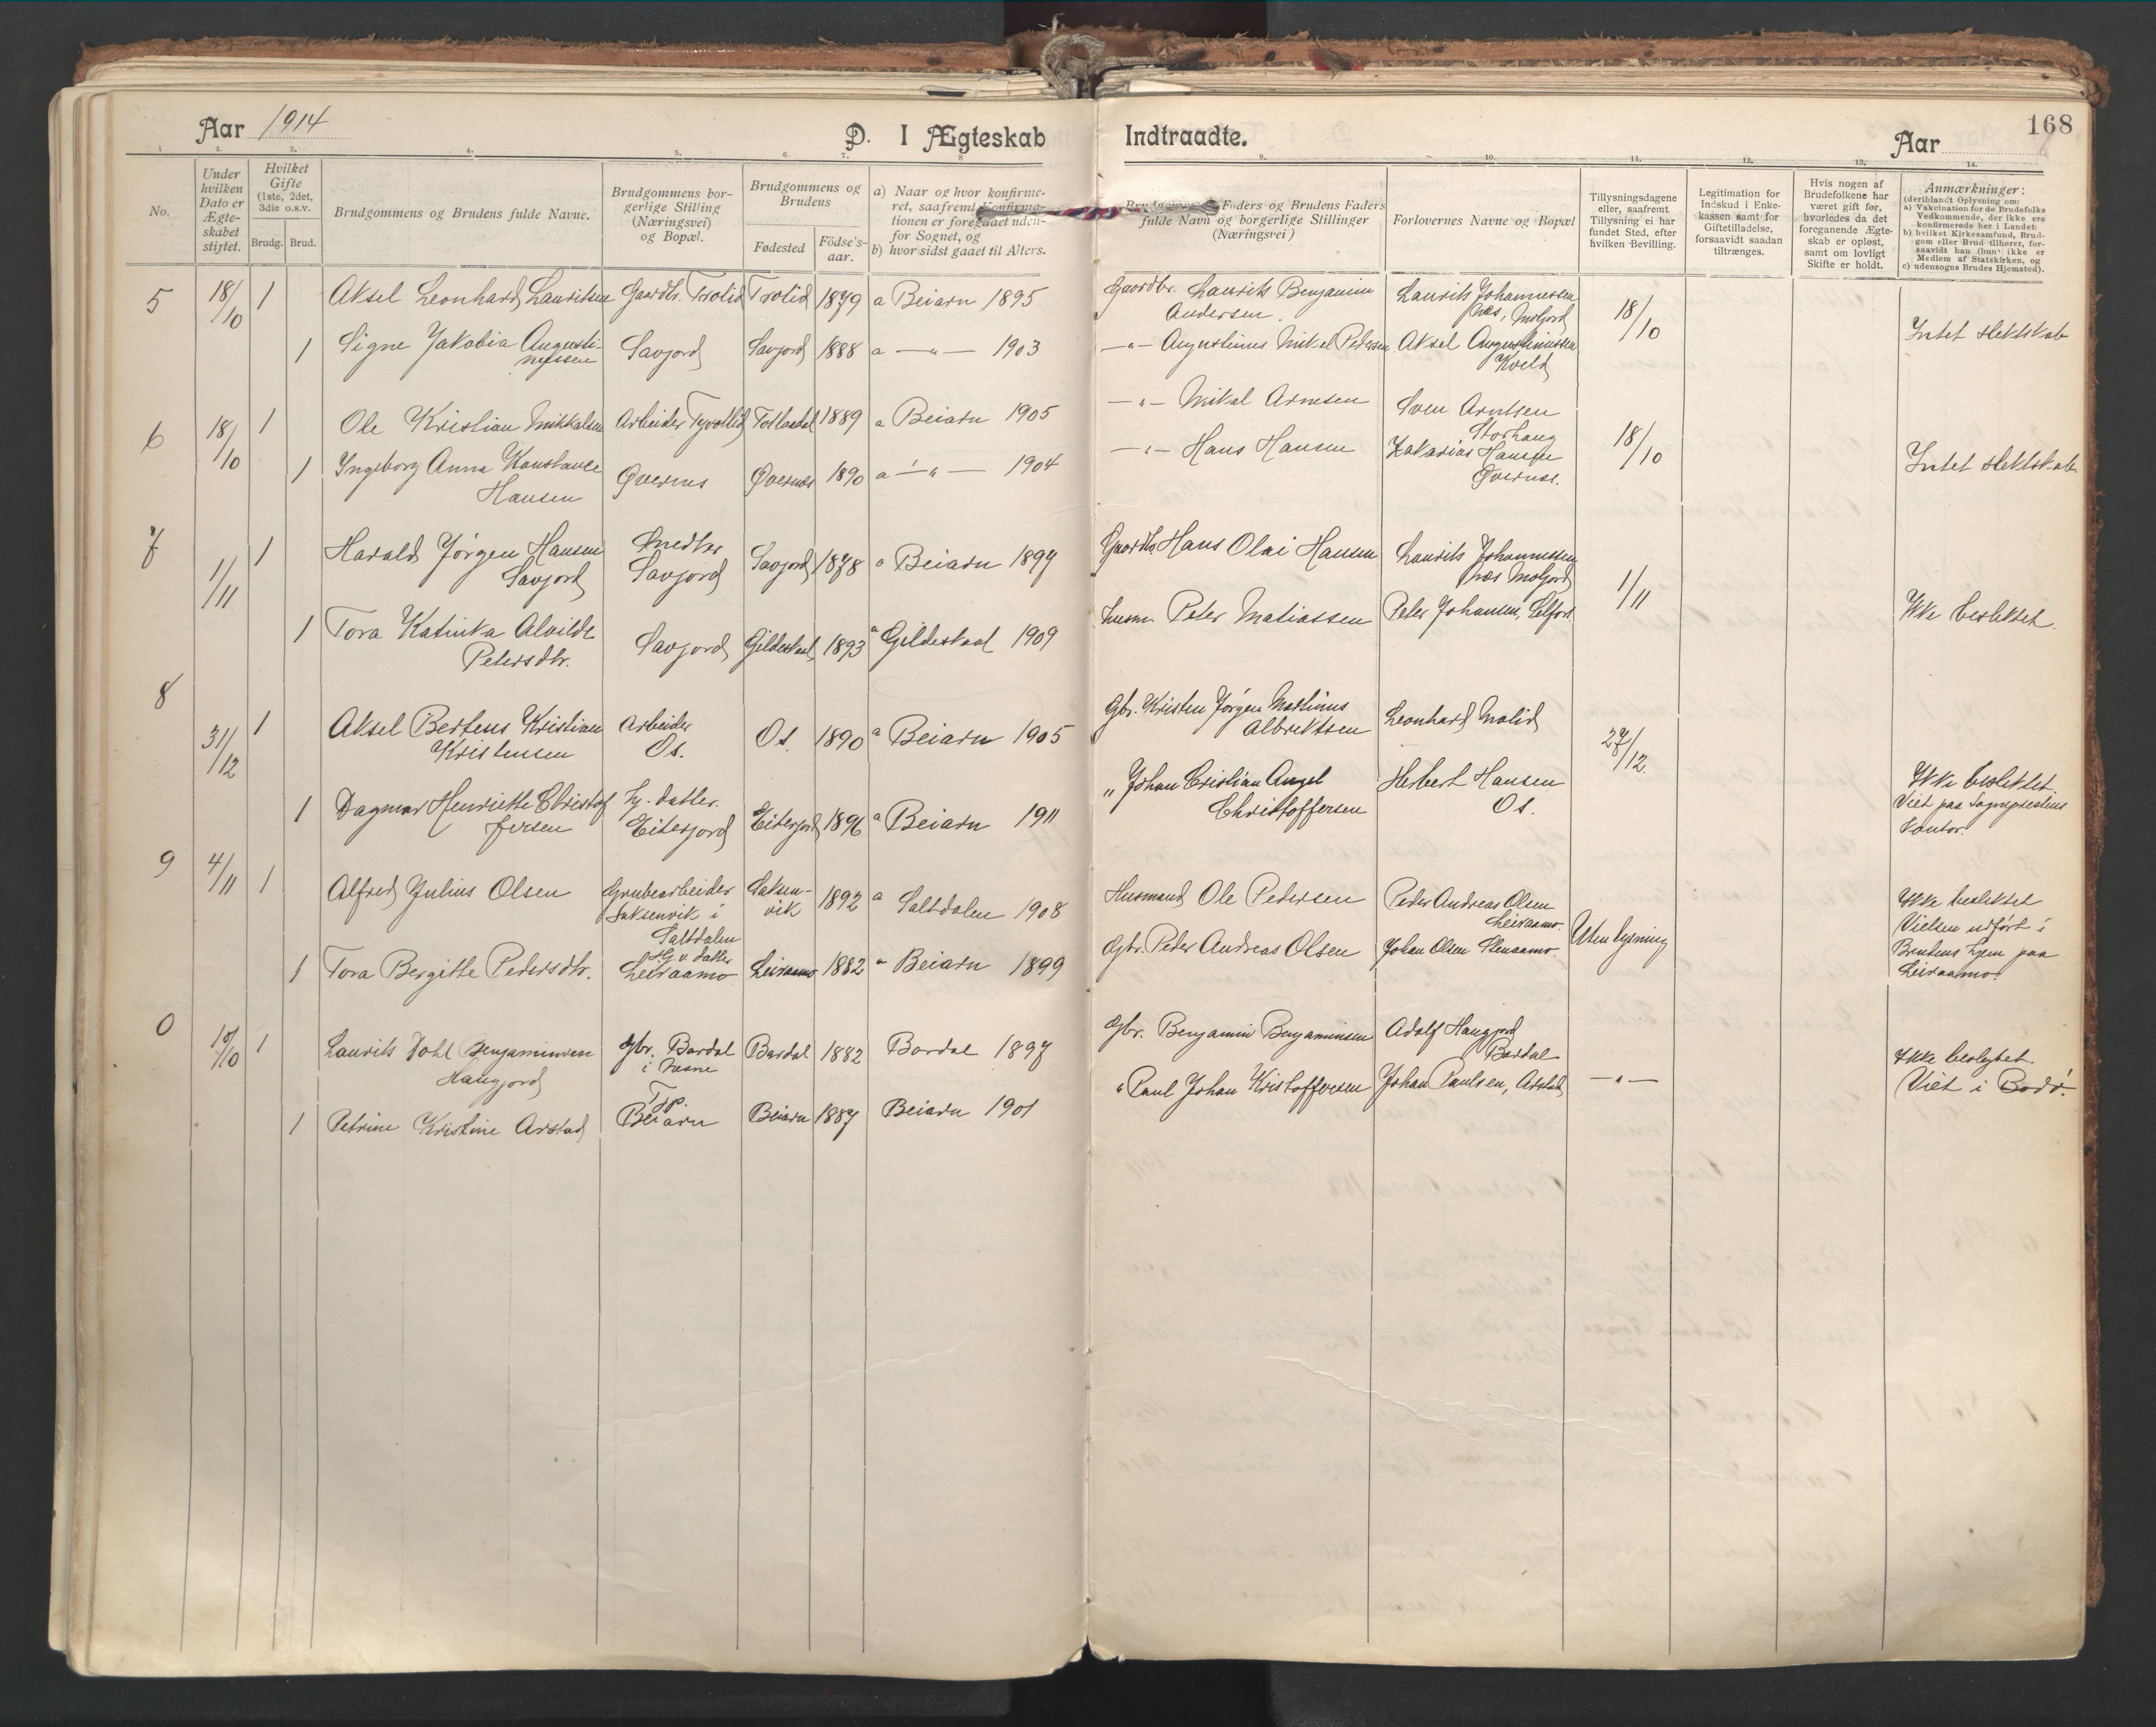 Aar 1914
D. I Ægteskab Indtraadte.
Aar
168
1. 2. 3. 4. 5. 6. 7. 8 9. 10. 11. 12. 13. 14.
No.
Under
hvilken
Dato er
Ægte-
skabet
stiftet.
Hvilket
Gifte
(1ste, 2det,
3die o.s.v.
Brudg. Brud.
Brudgommens og Brudens fulde Navne.
Brudgommens bor-
gerlige Stilling
(Næringsvei)
og Bopæl.
Brudgommens og
Brudens
Fødested
Födse's-
aar.
a) Naar og hvor konfirme-
ret, saafremt Konfirma-
tionen er foregaaet uden-
for Sognet, og
b) hvor sidst gaaet til Alters.
Brudgommens Faders og Brudens Faders
fulde Navn og borgerlige Stillinger
(Næringsvei)
Forlovernes Navne og Bopæl
Tillysningsdagene
eller, saafremt
Tillysning ei har
fundet Sted, efter
hvilken Bevilling.
Legitimation for
Indskud i Enke-
kassen samt for
Giftetilladelse,
forsaavidt saadan
tiltrænges.
Hvis nogen af
Brudefolkene har
været gift før,
hvorledes da det
foregaaende Ægte-
skab er opløst,
samt om lovligt
Skifte er holdt.
Anmærkninger:
(deriblandt Oplysning om:
a) Vakcination for de Brudefolks
Vedkommende, der ikke ere
konfirmerede her i Landet:
b) hvilket Kirkesamfund, Brud-
gom eller Brud tilhører, for-
saavidt han (hun) ikke er
Medlem af Statskirken, og
c) udensogns Brudes Hjemsted).
5 18/10 1 Aksel Leonhard Lauritsen Gaardbr. Trolid Trolid 1879 a Beiarn 1895 Gaardbr. Laurits Benjamin
Andersen. Laurits Johannessen
Næs, Moljord 18/10
1 Signe Jakobia Augusti-
nussen Savjord Savjord 1888 a — " — 1903 — " — Augustinus Mikel Pedersen Aksel Augustinussen
Kveld Intet slektskab
6 18/10 1 Ole Kristian Mikkalsen Arbeider Tollaadal 1889 a Beiarn 1905 — " — Mikal Arnesen Sven Arntsen
Storhaug 18/10
1 Ingeborg Anna Konstance
Hansen Qvernes Qvernes 1890 a — " — 1904 — " — Hans Hansen Zakarias Hansen
Qvernes. Intet slektskab
7 1/11 1 Harald Jørgen Hansen
Savjord Snedker
Savjord Savjord 1878 a Beiarn 1894 Gaardbr. Hans Olai Hansen Laurits Johannessen
Næs Moljord 1/11
1 Tora Katinka Alvilde
Petersdtr. Savjord Gildeskaal 1893 a Gildeskaal 1909 husm. Peter Matiassen Peter Johansen, Selfors. Ikke beslektet.
8 31/12 1 Aksel Bertens Kristian
Kristensen Arbeider
Os. Os. 1890 a Beiarn 1905 Gbr. Kristen Jørgen Martinus
Albriktsen Leonhard Molid 27/12.
1 Dagmar Henriette Christof
fersen hj. datter.
Eiterjord Eiterjord 1896 a Beiarn 1911 " Johan Cristian Angel
Christoffersen Herbert Hansen
Os. Ikke beslektet.
Viet paa Sogneprestens
Kontor.
9 4/11 1 Alfred Julius Olsen Grubearbeider
Saksenvik i
Saltdalen Saksen-
vik 1892 a Saltdalen 1908 Husmand Ole Pedersen Peder Andreas Olsen
Leiraamo. Uten lysning
1 Tora Bergitte Pedersdtr. Leiraamo Leiraamo 1882 " Beiarn 1899 Gbr. Peder Andreas Olsen Johan Olsen Stenaamo. Ikke beslektet
Vielsen udført i
Brudens hjem paa
Leiraamo.
0 10/10 1 Laurits Dahl Benjaminsen
Haugjord Gbr. Bardal
i Nesne Bardal 1882 Bardal 1897 Gbr. Benjamin Benjaminsen Adolf Haugjord
Bardal
1 Petrine Kristine Arstad Tjp.
Beiarn Beiarn 1887 Beiarn 1901 " Paul Johan Kristoffersen Johan Paulsen, Arstad — " — Ikke beslegtet.
Viet i Bodø.